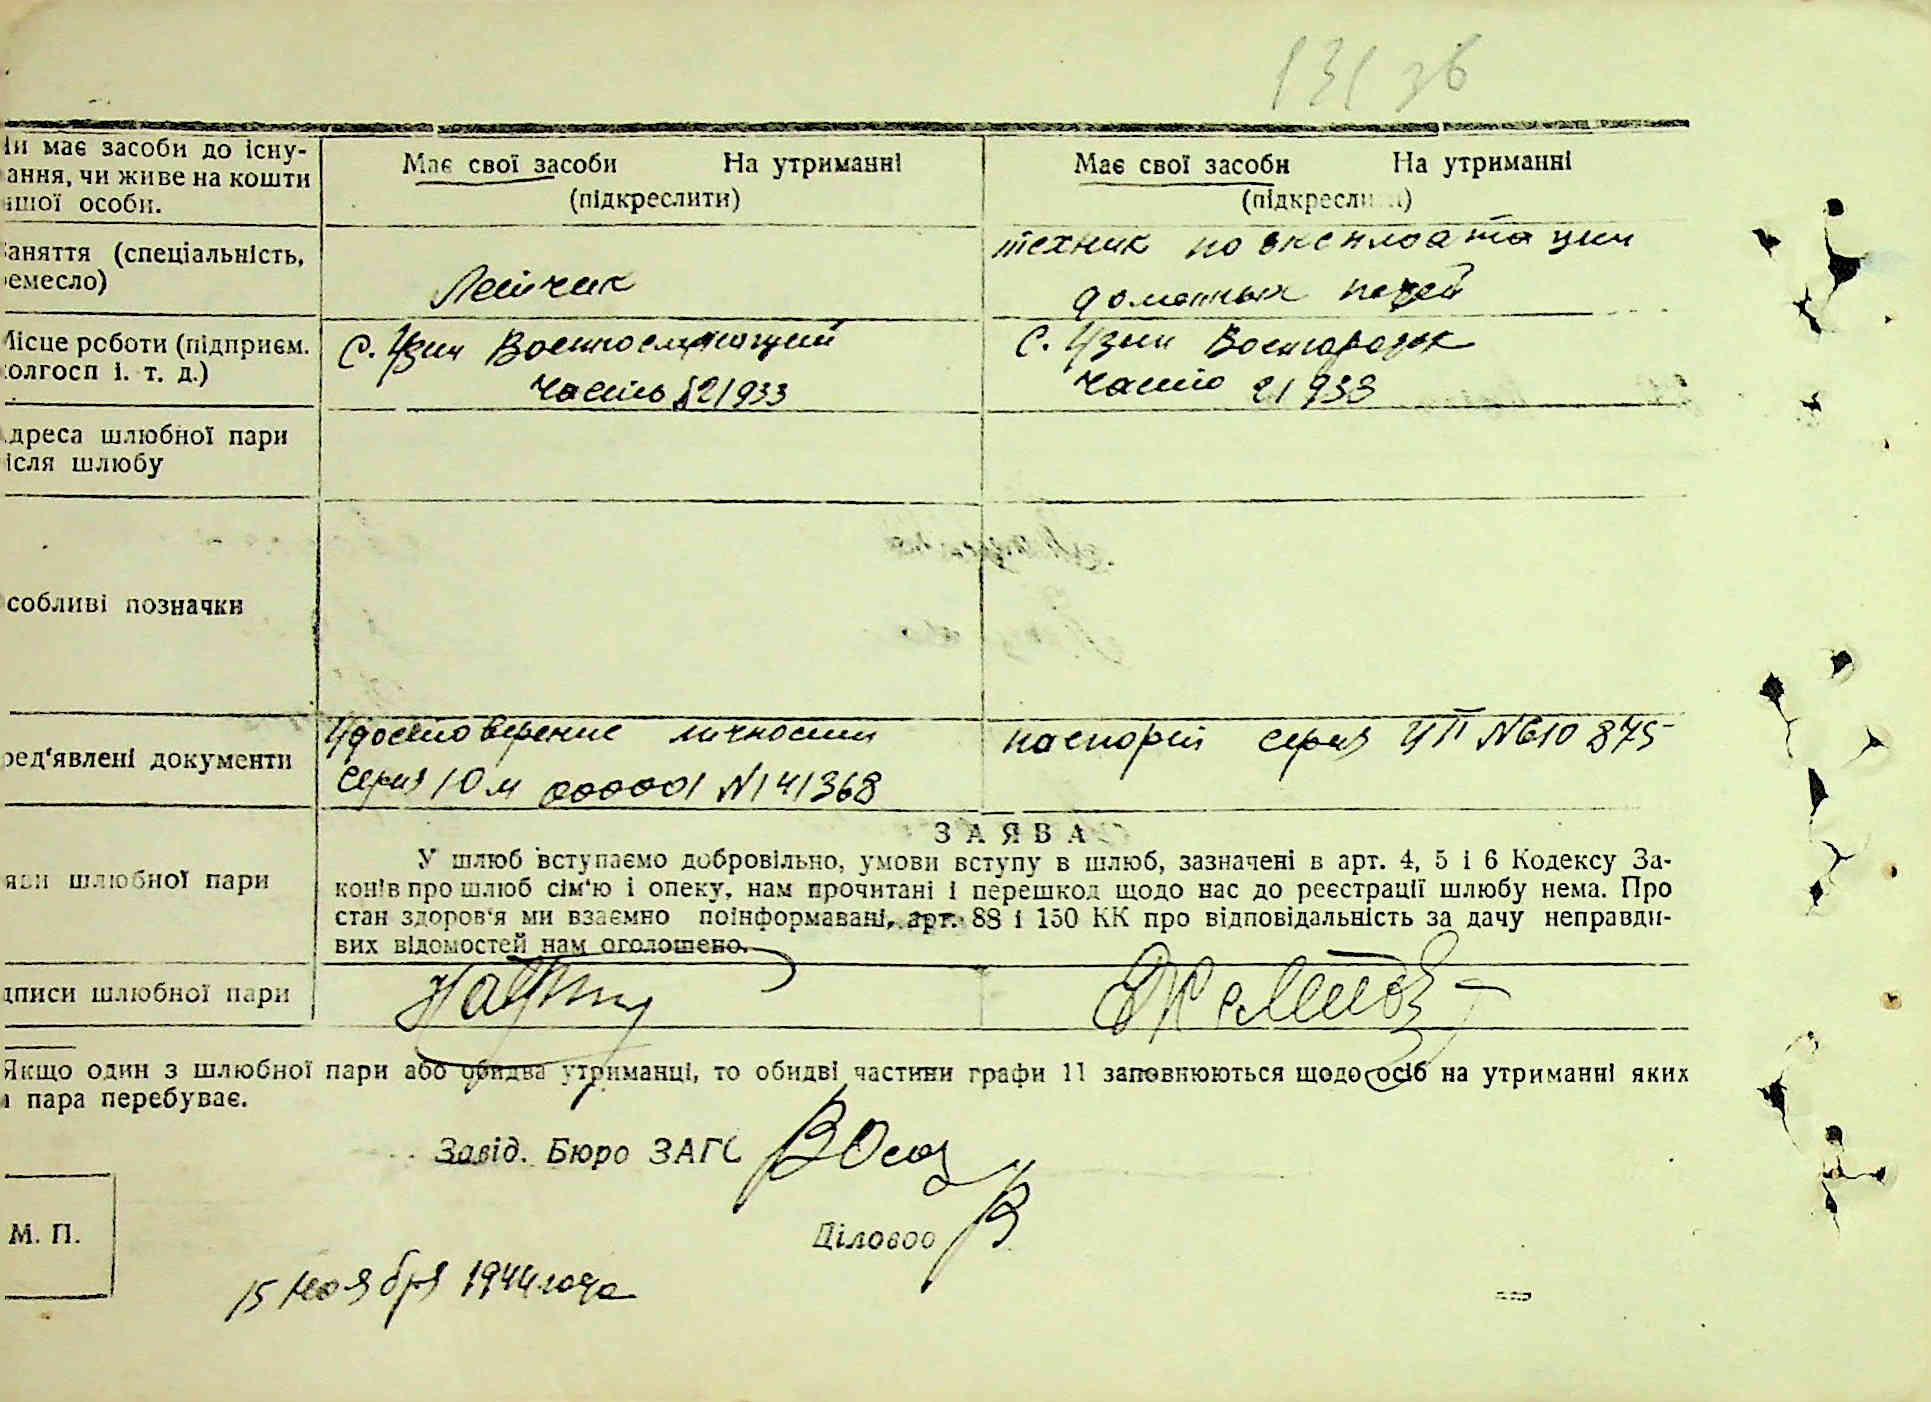 131 зв
Чи має засоби до існу-
ання, чи живе на кошти
ншої особи.
Має свої засоби На утриманні
(підкреслити)
Має свої засоби На утриманні
(підкреслити)
аняття (спеціальність,
емесло)
Летчик
техник по эксплоатации
доменных печей
Місце роботи (підприєм.
олгосп і. т. д.)
с. Узин Военнослужащий
часть 21933
с. Узин Военгородок
часть 21933
дреса шлюбної пари
ісля шлюбу
собливі позначки
ред'явлені документи
Удостоверение личности
серия 10 м 000001 N 141368
паспорт серия УП N 610875
яви шлюбної пари
ЗАЯВА
У шлюб вступаємо добровільно, умови вступу в шлюб, зазначені в арт. 4, 5 і 6 Кодексу За-
конів про шлюб сім'ю і опеку, нам прочитані і перешкод щодо нас до реєстрації шлюбу нема. Про
стан здоров'я ми взаємно поінформавані, арт. 88 і 150 КК про відповідальність за дачу неправди-
вих відомостей нам оголошено.
дписи шлюбної пари
Якщо один з шлюбної пари або обидва утриманці, то обидві частини графи 11 заповнюються щодо осіб на утриманні яких
а пара перебуває.
Завід. Бюро ЗАГС
Діловод
М. П.
15 ноября 1944 года